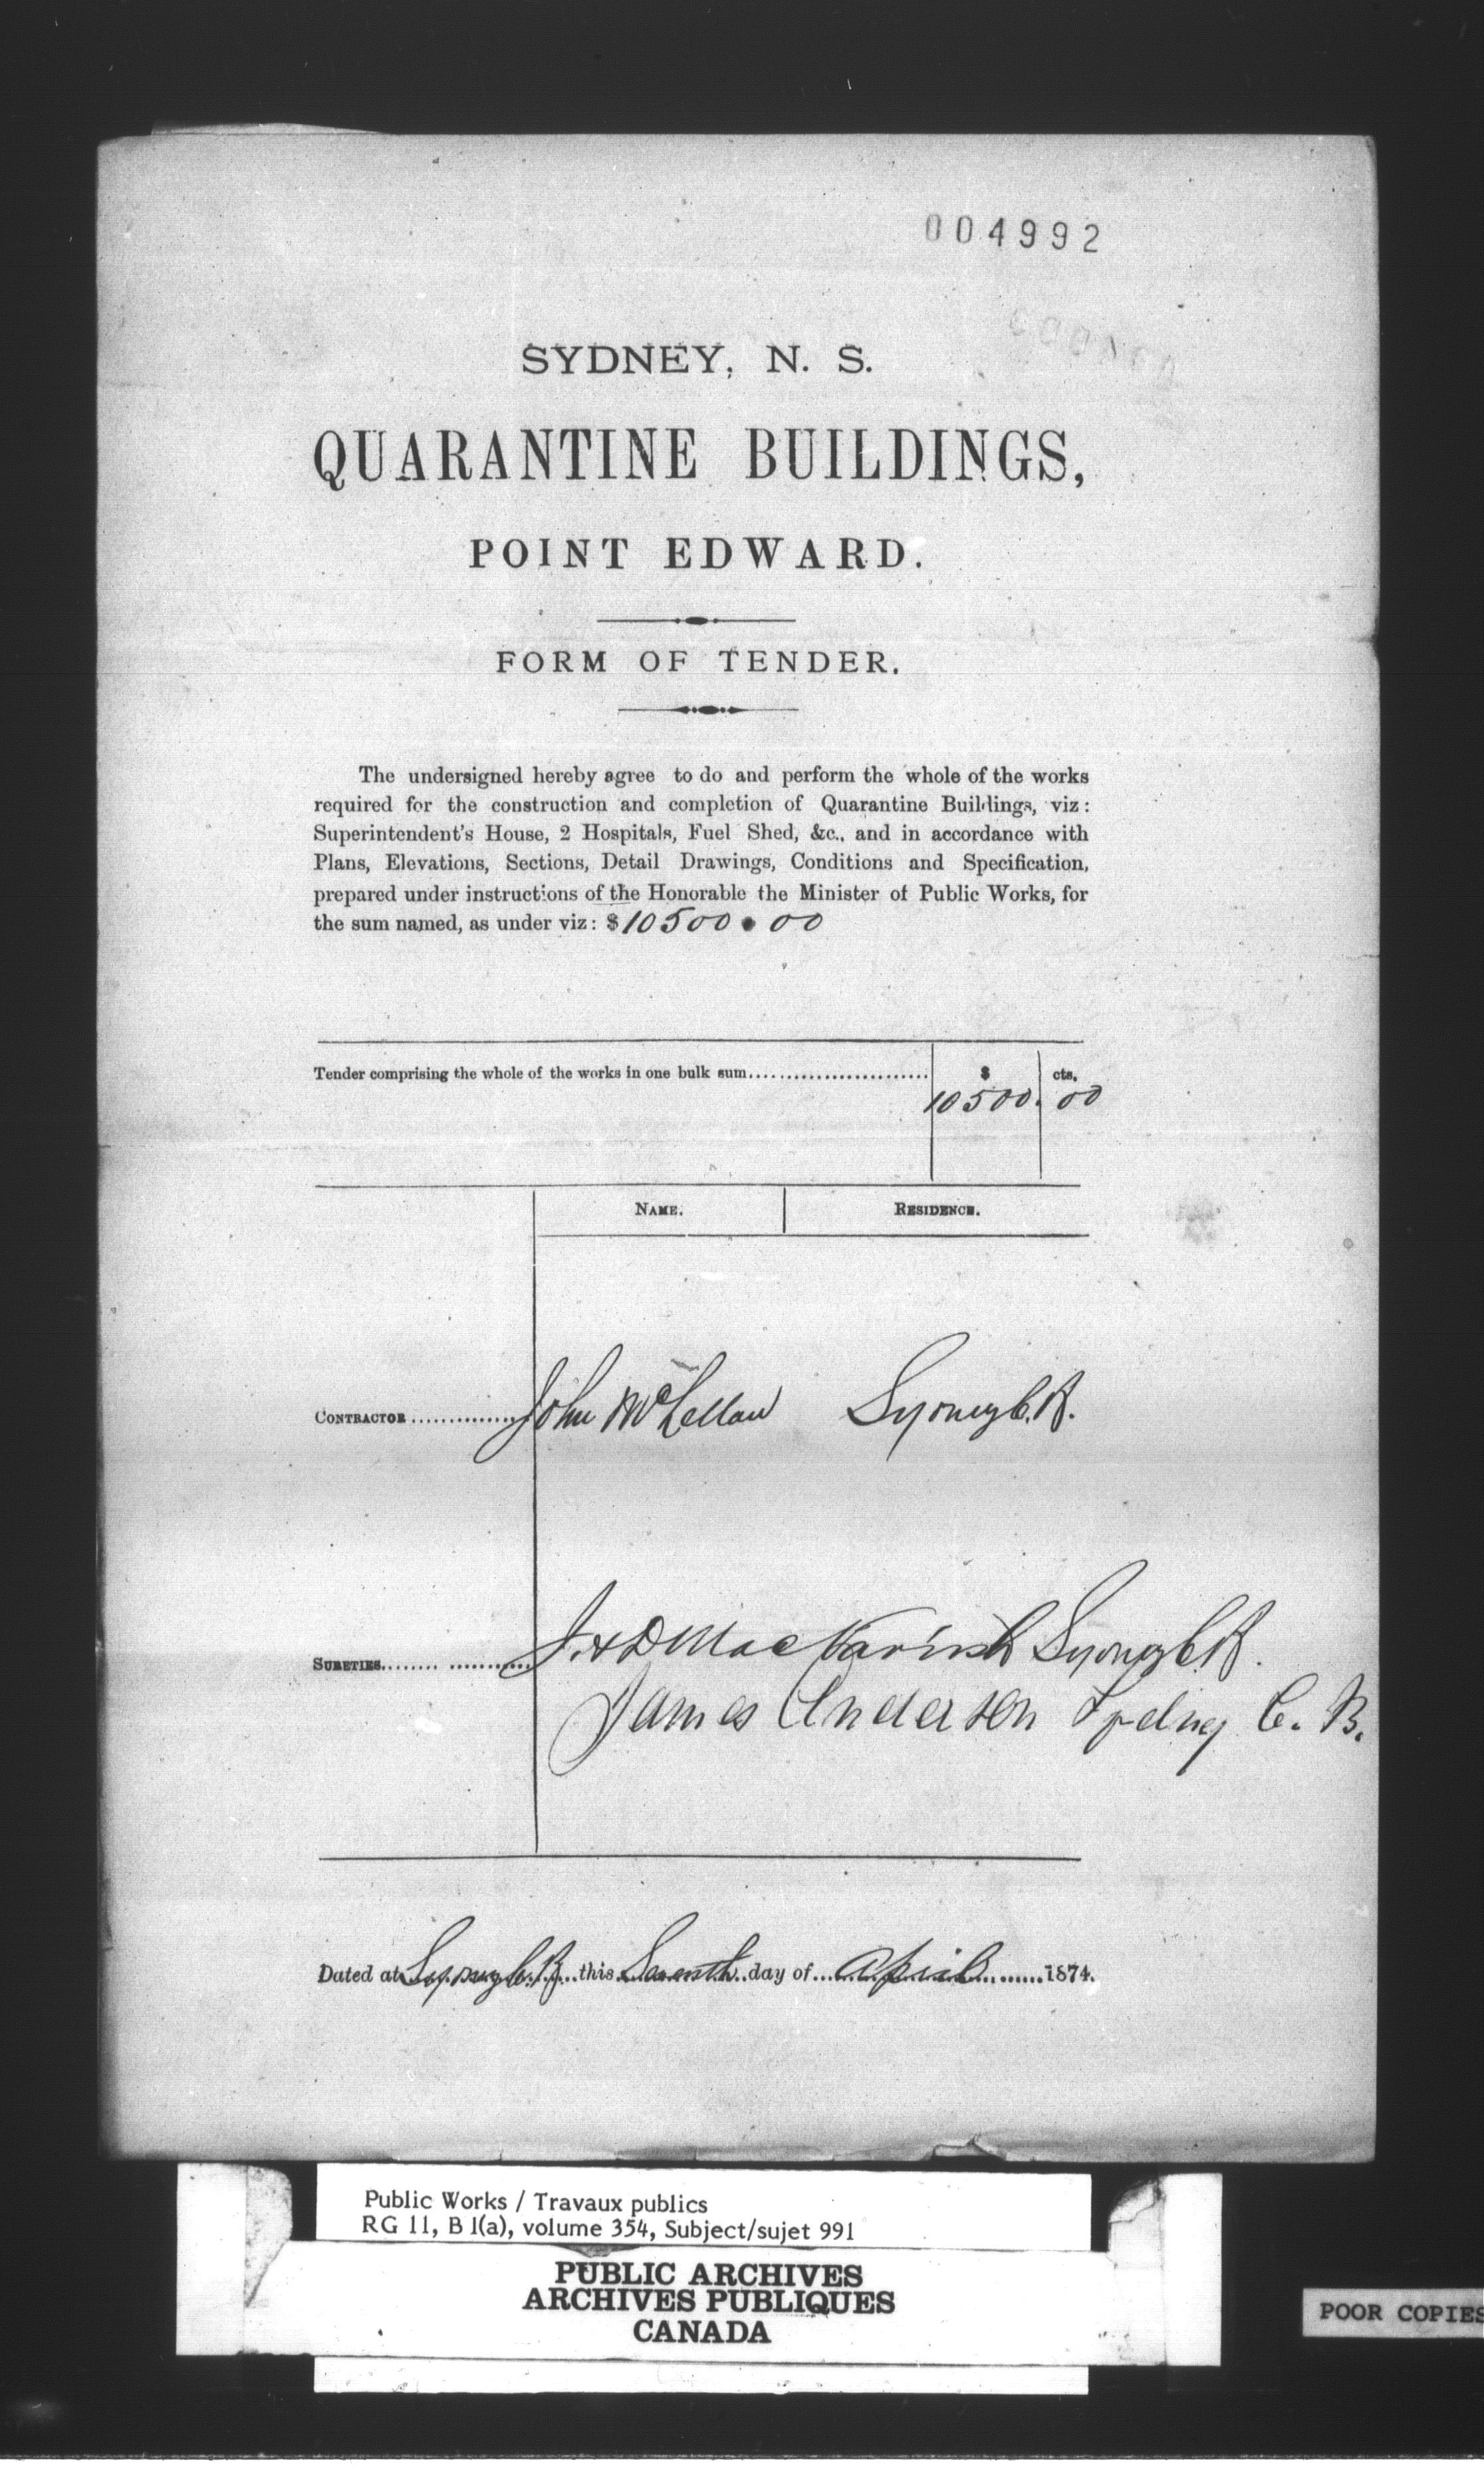 004992
SYDNEY, N. S.
QUARANTINE BUILDINGS,
POINT EDWARD.
FORM OF TENDER.
The undersigned hereby agree to do and perform the whole of the works
required for the construction and completion of Quarantine Buildings, viz:
Superintendent's House, 2 Hospitals, Fuel Shed, &c., and in accordance with
Plans, Elevations, Sections, Detail Drawings, Conditions and Specification,
prepared under instructions of the Honorable the Minister of Public Works, for
the sum named, as under viz: $10500.00
Tender comprising the whole of the works in one bulk sum........................ $ cts.
10500. 00
NAME. RESIDENCE.
CONTRACTOR.............. John McLellan Sydney C.B.
SURETIES........ ............ J. & D MacTavish Sydney C.B.
James Anderson Sydney C. B.
Dated at Sydney C.B. this Seventh day of April 1874.
Public Works / Travaux publics
RG 11, B 1(a), volume 354, Subject/sujet 991
PUBLIC ARCHIVES
ARCHIVES PUBLIQUES
CANADA
POOR COPIES